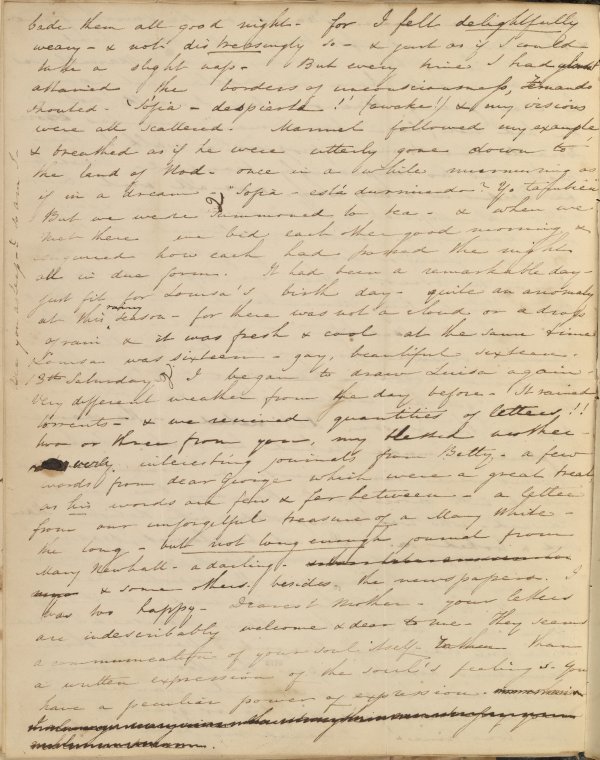 bade them all good night - for I felt delightfully
weary - & not distressingly so - & just as if I could
take a slight nap. But every time I had almost
attained the borders of unconsciousness, Fernando
shouted - "Sofia - despierta!!" (awake!) & my visions
were all scattered. Manuel followed my example
& breathed as if he were utterly gone down to
the land of Nod - once in a while murmuring as
if in a dream - "Sofia - está durmiendo? Yo tambien
But we were summoned to tea - & when we
met there we bid each other good morning &
enquired how each had passed the night
all in due form. It had been a remarkable day -
just fit for Louisa's birth day - quite an anomaly
at this rainy season - for there was not a cloud, or a drop
of rain & it was fresh & cool at the same time
Louisa was sixteen - gay, beautiful sixteen.
13th Saturday I began to draw Luisa again -
Very different weather from the day before - It rained
torrents - & we received quantities of letters!!
two or three from you, my blessed mother -
very interesting journals from Betty - a few
words from dear George which were a great treat
as his words are few & far between - a letter
from our unforgetful treasure of a Mary White -
the long - but not long enough journal from
Mary Newhall - a darling -
& some others, besides the newspapers. I
was too happy - Dearest Mother - your letters
are indescribably welcome & dear to me - They seem
a communication of your soul itself - rather than
a written expression of the soul's feelings. You
have a peculiar power of expression -
Are you asleep - I so am I -